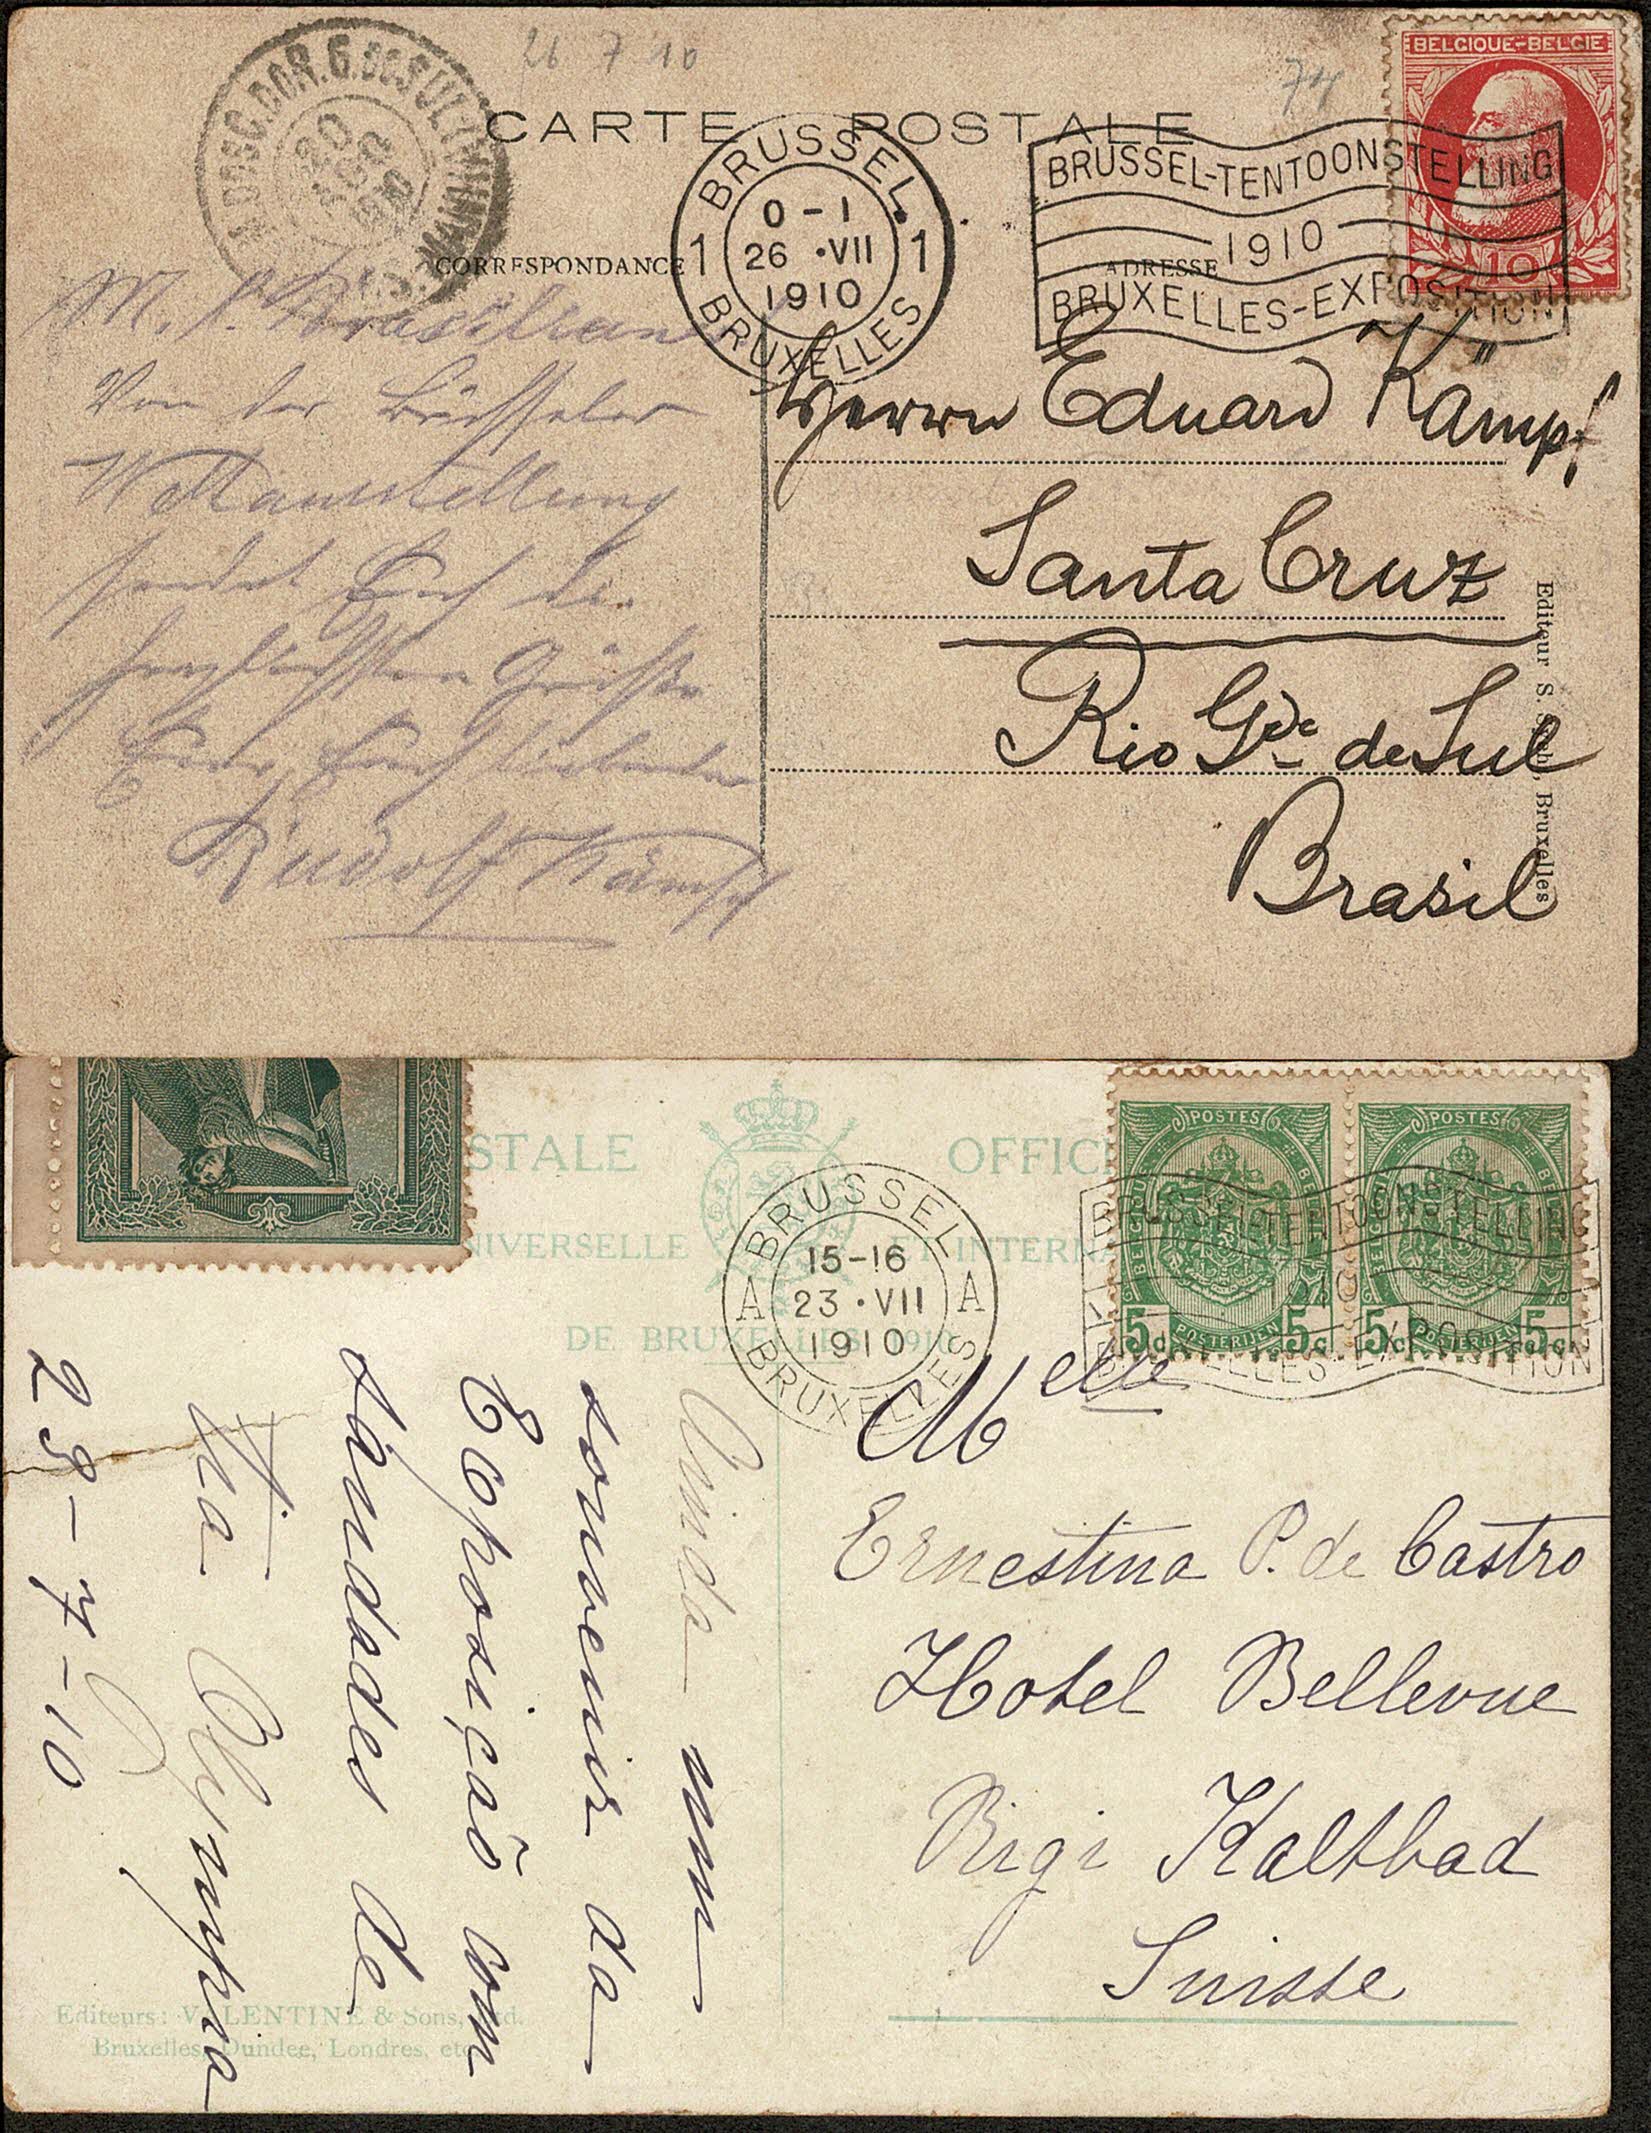 26 7 10
74
BELGIQUE-BELGIE
10
CARTE POSTALE
BRUSSEL
0-1
1 26 · VII 1
1910
BRUXELLES
BRUSSEL-TENTOONSTELLING
1910
BRUXELLES-EXPOSITION
CORRESPONDANCE
ADRESSE
Von der Brüsseler
Weltausstellung
sendet Euch die
herzlichsten Grüße
Euer, Euch liebender
Rudolf Kämpf
Herrn Eduard Kämpf
Santa Cruz
Rio Gde de Sul
Brasil
Editeur S. Bruxelles
STALE OFFICI
NIVERSELLE ET INTERNA
DE BRUXELLES 1910
POSTES POSTES
BELGIQUE BELGIQUE
5c 5c 5c 5c
POSTERIJEN POSTERIJEN
BRUSSEL
15-16
A 23 · VII A
1910
BRUXELLES
BRUSSEL-TENTOONSTELLING
BRUXELLES-EXPOSITION
Ainda um
souvenir da
Exposição com
saudades de
tia Olympia
23-7-10
Melle
Ernestina P. de Castro
Hotel Bellevue
Rigi Kaltbad
Suisse
Editeurs: VALENTINE & Sons, Ltd.
Bruxelles, Dundee, Londres, etc.